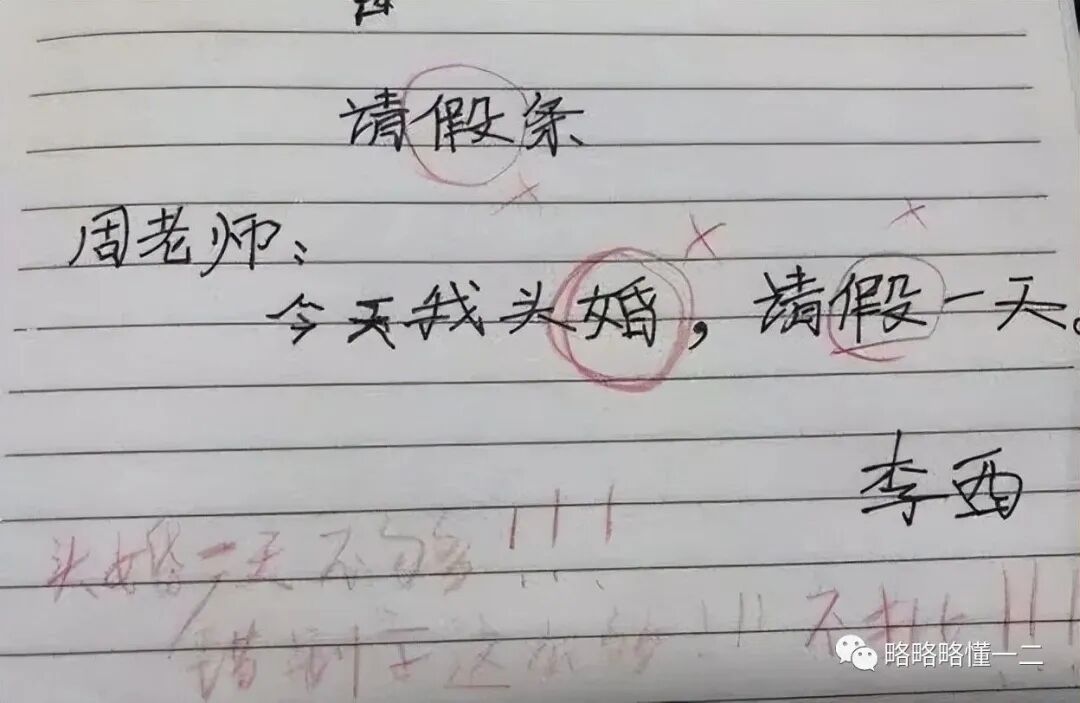 请假条
周老师：
今天我头婚，请假一天。
李西
头婚一天不够！！！
错别字这么多！！！不批！！！
略略略懂一二